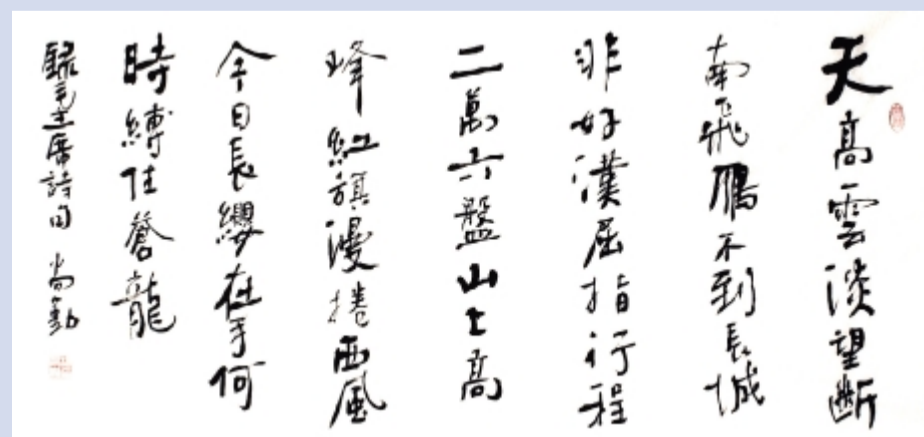 天高雲淡望斷
南飛鴈不到長城
非好漢屈指行程
二萬六盤山上高
峰紅旗漫捲西風
今日長纓在手何
時縛住蒼龍
録毛主席詩句 尚勤